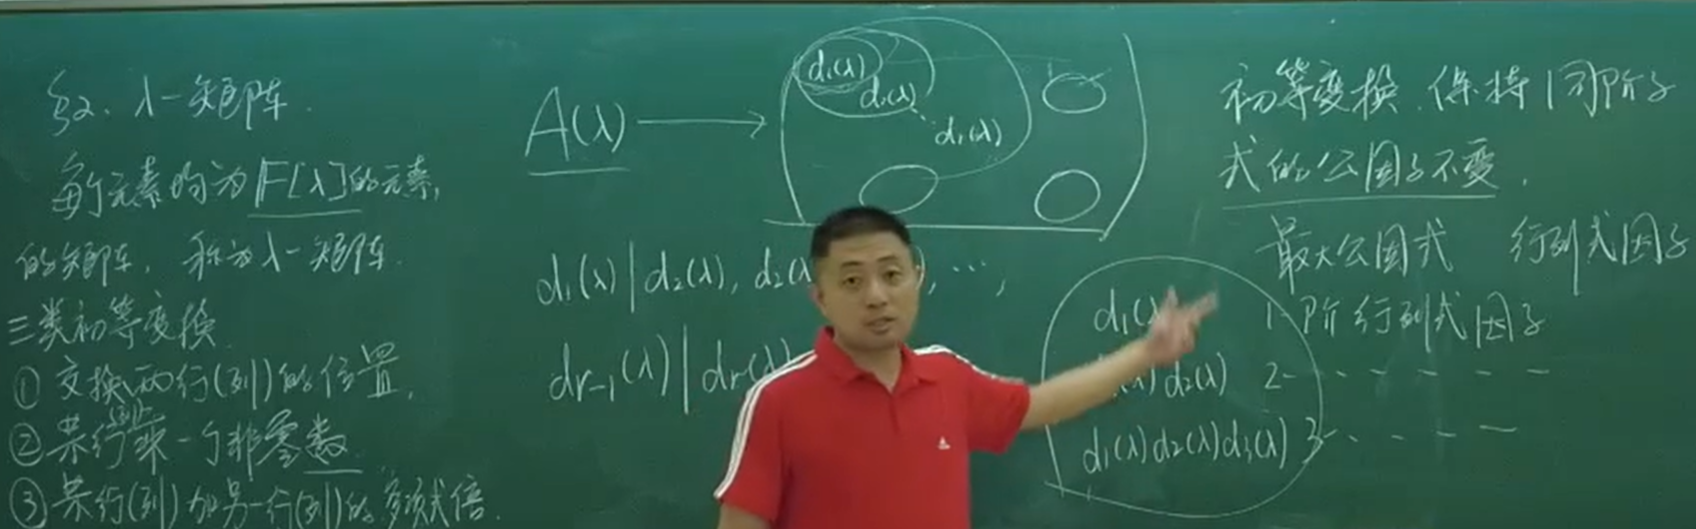 §2、λ-矩阵.
每个元素均为F[λ]的元素,
的矩阵, 称为λ-矩阵.
三类初等变换
① 交换两行(列)的位置,
② 某行(列)乘一个非零数
③ 某行(列)加另一行(列)的多项式倍.
A(λ) ⟶
d₁(λ)
d₂(λ)
dᵣ(λ)
d₁(λ)|d₂(λ), d₂(λ ), ⋯,
dᵣ₋₁(λ)|dᵣ(λ)
初等变换、保持同阶子
式的公因子不变,
最大公因式 行列式因子
d₁(λ 1-阶行列式因子
(λ)d₂(λ) 2- - - - - -
d₁(λ)d₂(λ)d₃(λ) 3- - - - -